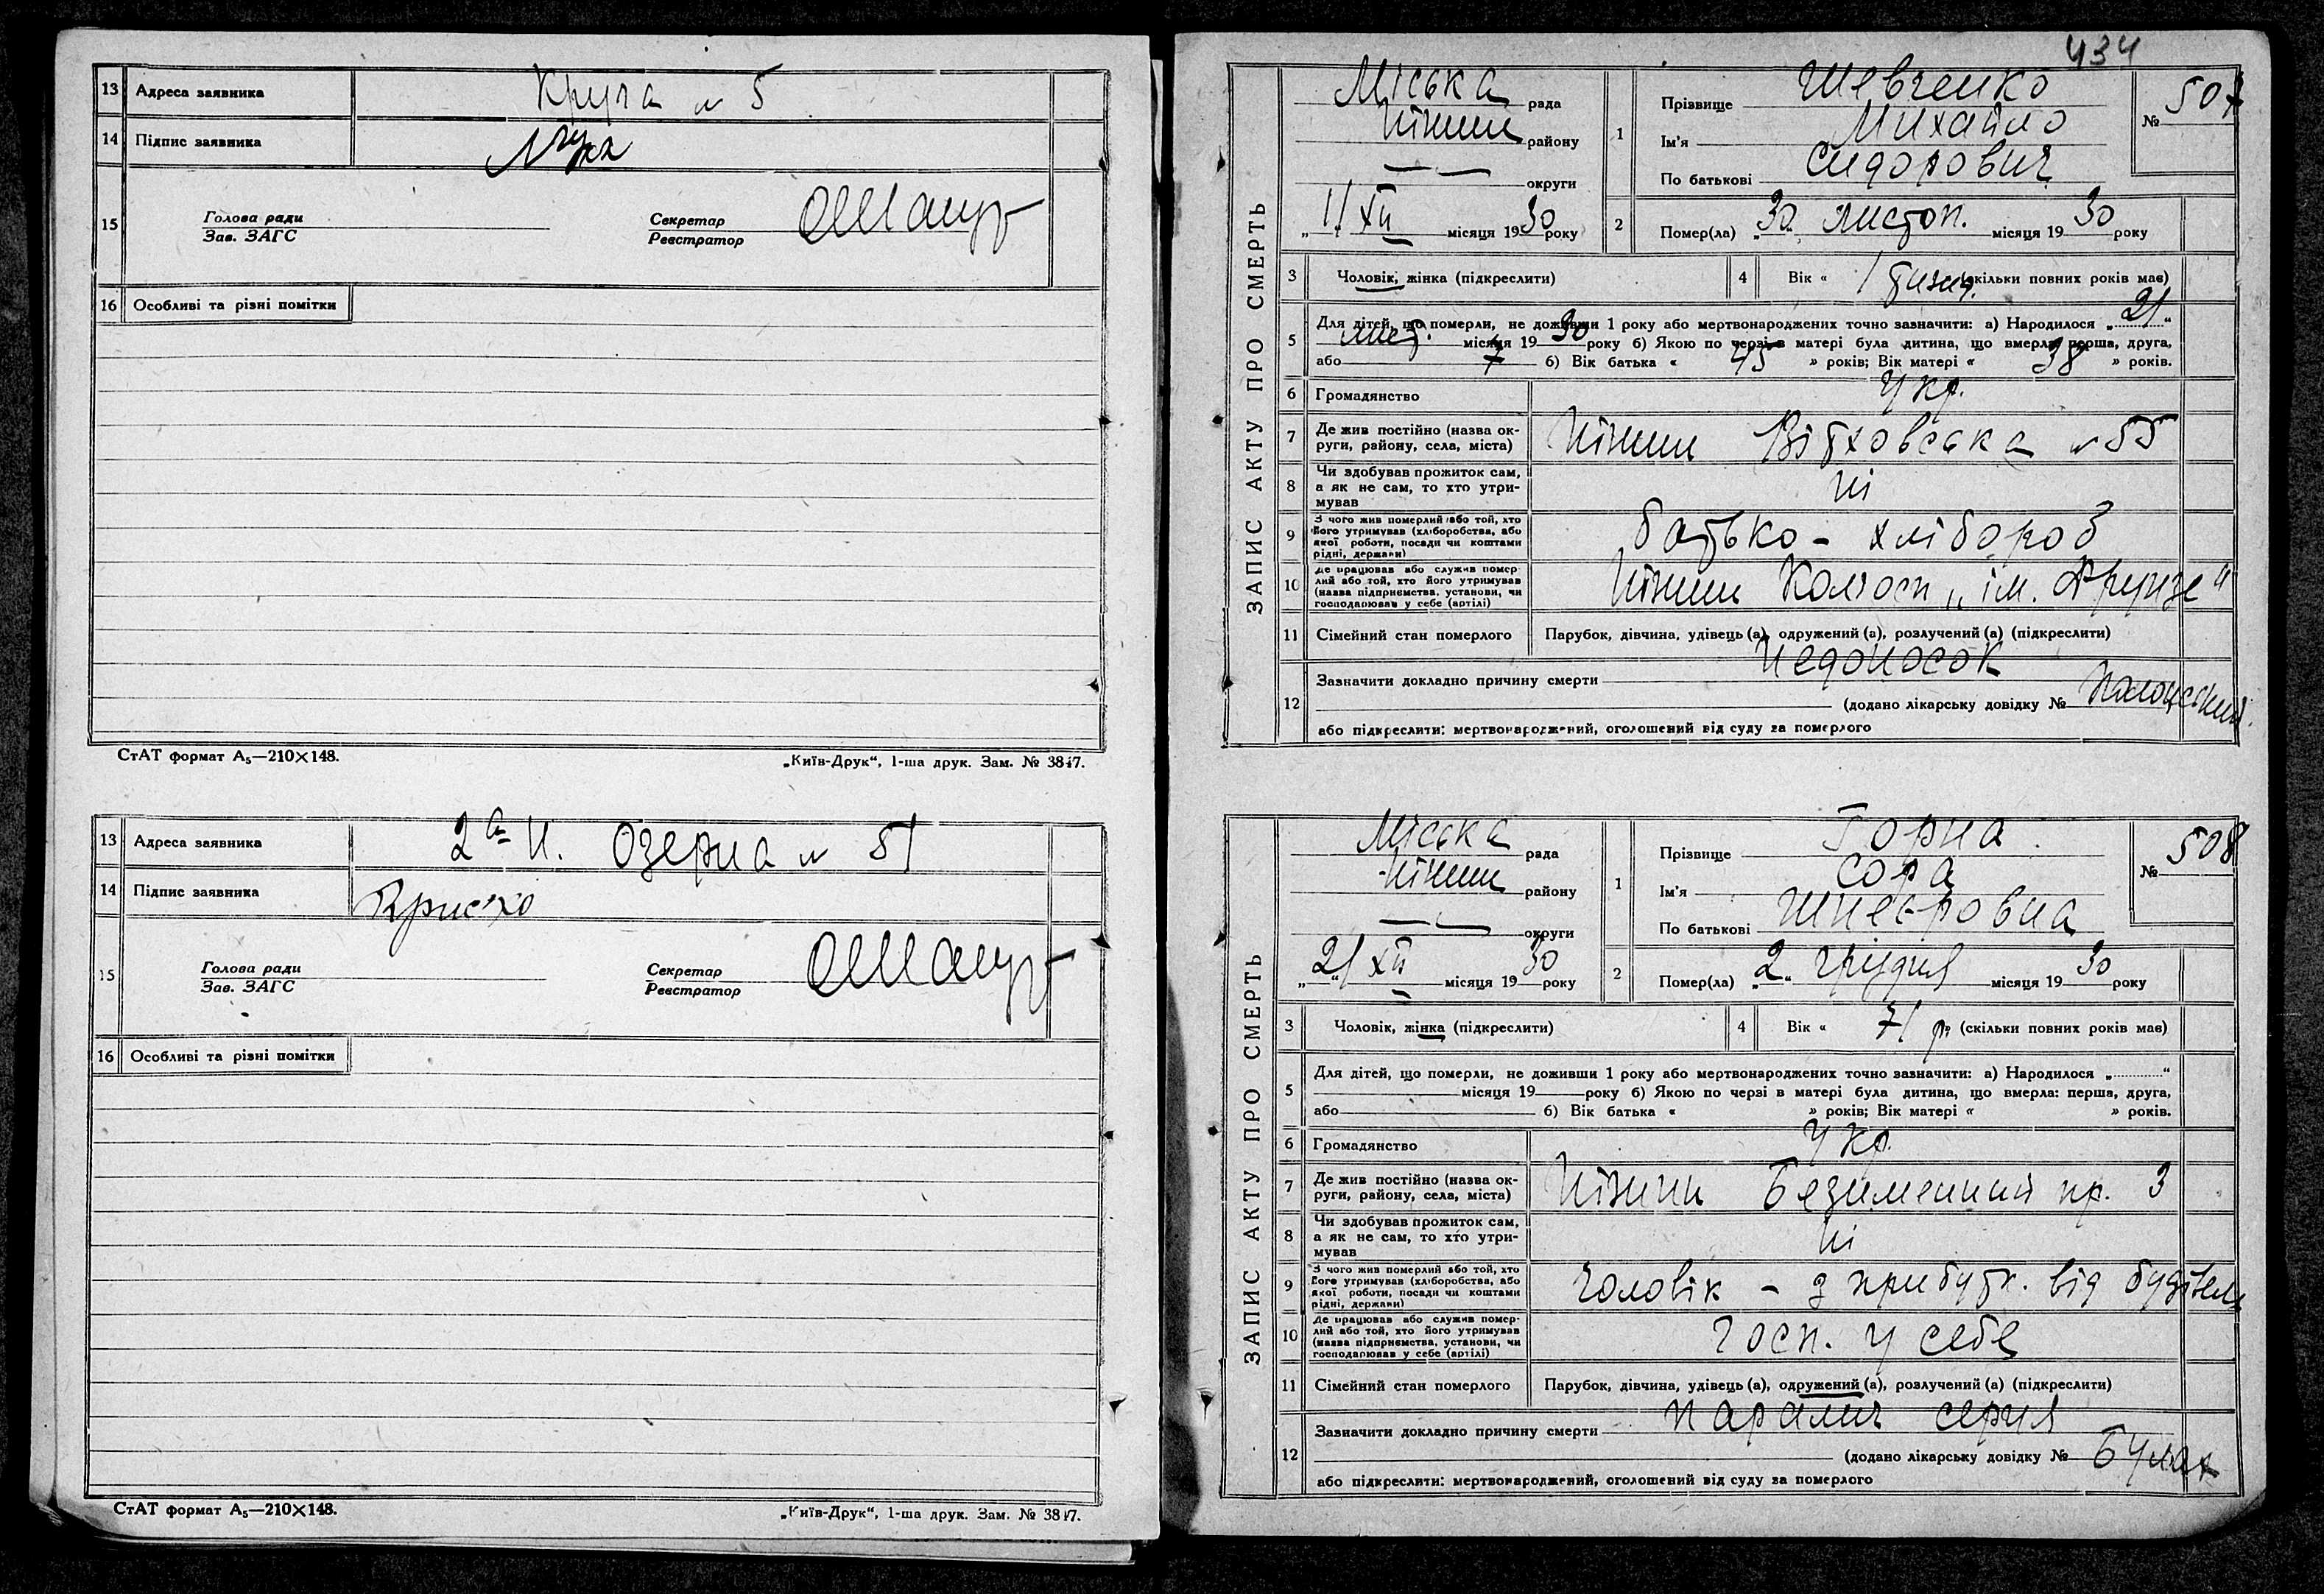 13 Адреса заявника Круча № 5
14 Підпис заявника
15 Голова ради
Зав. ЗАГС
Секретар
Реєстратор
16 Особливі та різні помітки
СтАТ формат А₅—210×148.
„Київ-Друк“, 1-ша друк. Зам. № 3847.
13 Адреса заявника 2ª Н. Озерна № 51
14 Підпис заявника
15 Голова ради
Зав. ЗАГС
Секретар
Реєстратор
16 Особливі та різні помітки
СтАТ формат А₅—210×148.
„Київ-Друк“, 1-ша друк. Зам. № 3847.
434
ЗАПИС АКТУ ПРО СМЕРТЬ
Міська рада
Ніжин району
— округи
„ 1/XII місяця 1930 року
1 Прізвище Шевченко
Ім'я Михайло
По батькові Сидорович
№ 507
2 Помер(ла) „30“ листоп. місяця 1930 року
3 Чоловік, жінка (підкреслити)
4 Вік « 1 тижд. скільки повних років має)
5 Для дітей, що померли, не доживши 1 року або мертвонароджених точно зазначити: а) Народилося „21“
лист. місяця 1930 року б) Якою по черзі в матері була дитина, що вмерла: перша, друга,
або 7 б) Вік батька « 45 » років; Вік матері « 38 » років.
6 Громадянство Укр.
7 Де жив постійно (назва ок-
руги, району, села, міста) Ніжин № 55
8 Чи здобував прожиток сам,
а як не сам, то хто утри-
мував ні
9 З чого жив померлий або той, хто
його утримував (хліборобства, або
якої роботи, посади чи коштами
рідні, держави) батько - хлібороб
10 Де працював або служив помер-
лий або той, хто його утримував
(назва підприємства, установи, чи
господарював у себе (артілі) Ніжин Колгосп „ім. Фрунзе“
11 Сімейний стан померлого Парубок, дівчина, удівець (а), одружений (а), розлучений (а) (підкреслити)
12 Зазначити докладно причину смерти Недоносок
(додано лікарську довідку №
або підкреслити: мертвонароджений, оголошений від суду за померлого
ЗАПИС АКТУ ПРО СМЕРТЬ
Міська рада
Ніжин району
— округи
„ 2/XII місяця 1930 року
1 Прізвище Горна
Ім'я Сора
По батькові Шнеєровна
№ 508
2 Помер(ла) „2“ грудня місяця 1930 року
3 Чоловік, жінка (підкреслити)
4 Вік « 71 р. (скільки повних років має)
5 Для дітей, що померли, не доживши 1 року або мертвонароджених точно зазначити: а) Народилося „ “
місяця 19 року б) Якою по черзі в матері була дитина, що вмерла: перша, друга,
або б) Вік батька « » років; Вік матері « » років.
6 Громадянство Укр.
7 Де жив постійно (назва ок-
руги, району, села, міста) Ніжин Безименний пр. 3
8 Чи здобував прожиток сам,
а як не сам, то хто утри-
мував ні
9 З чого жив померлий або той, хто
його утримував (хліборобства, або
якої роботи, посади чи коштами
рідні, держави) Чоловік - з прибутк. від будівель
10 Де працював або служив помер-
лий або той, хто його утримував
(назва підприємства, установи, чи
господарював у себе (артілі) Госп. у себе
11 Сімейний стан померлого Парубок, дівчина, удівець (а), одружений (а), розлучений (а) (підкреслити)
12 Зазначити докладно причину смерти параліч серця
(додано лікарську довідку № Булах
або підкреслити: мертвонароджений, оголошений від суду за померлого